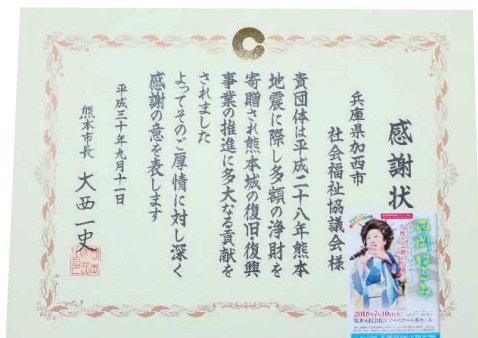 感謝状
兵庫県加西市
社会福祉協議会様
貴団体は平成二十八年熊本
地震に際し多額の浄財を
寄贈され熊本城の復旧復興
事業の推進に多大なる貢献を
されました
よってそのご厚情に対し深く
感謝の意を表します
平成三十年九月十一日
熊本市長 大西一史
2018年7月10日(火)